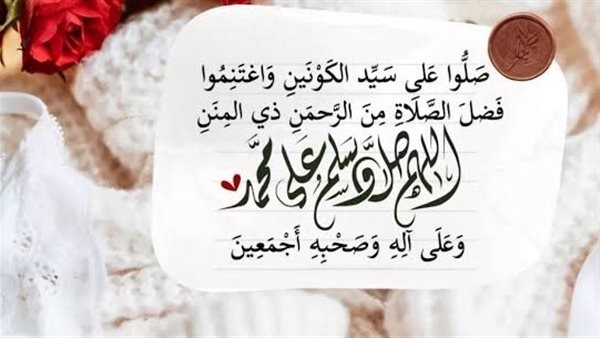 صَلُّوا عَلى سَيِّد الكَوْنَينِ وَاغتَنِمُوا
فَضلَ الصَّلَاةِ مِنَ الرَّحمَنِ ذي المِنَنِ
اللهم صل وسلم على محمد
وَعَلَى آلِهِ وَصَحْبِهِ أَجْمَعِينَ